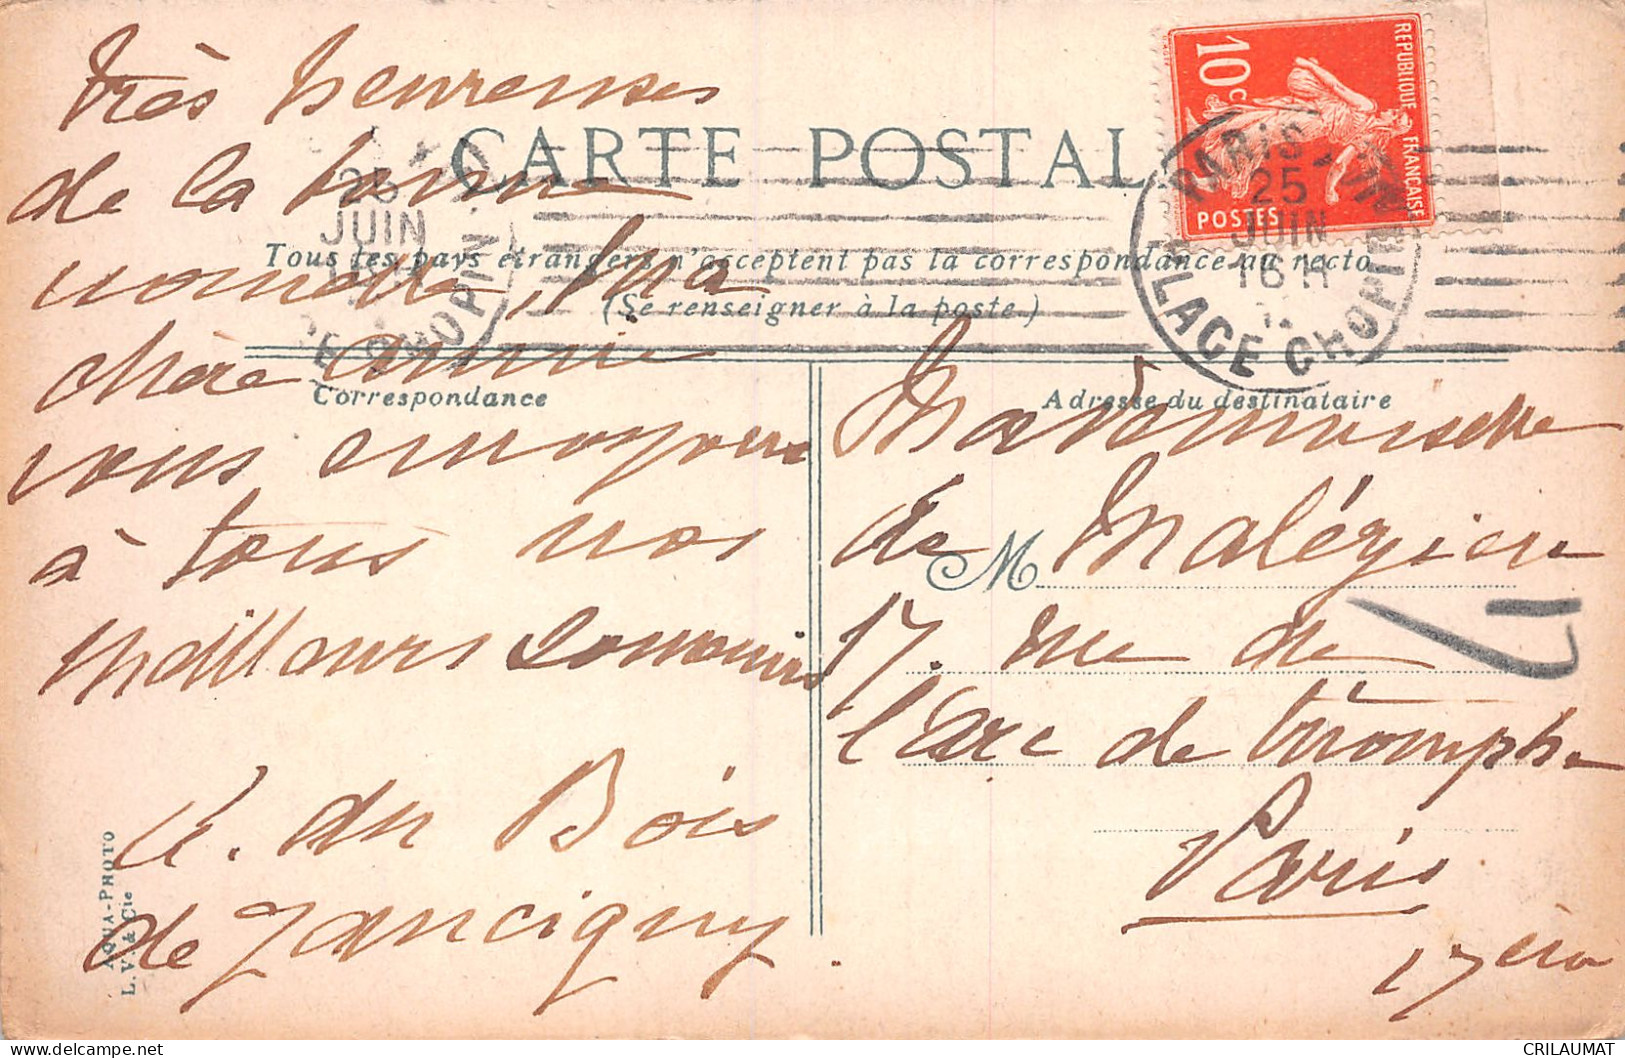 très heureuses
de la bonne
nouvelle, ma
chère amie
vous envoyons
à tous nos
meilleurs souvenirs
du Bois
de Jancigny.
CARTE POSTALE
Tous les pays étrangers n'acceptent pas la correspondance au recto
(Se renseigner à la poste)
Correspondance
Adresse du destinataire
REPUBLIQUE FRANÇAISE
10c
POSTES
PARIS
25
JUIN
16 H
PLACE CHOPIN
25
JUIN
CHOPIN
Mademoiselle
de Malézieu
M
17. rue de
l'Arc de triomphe
Paris
17
AQUA-PHOTO
L. V. & Cie
CRILAUMAT